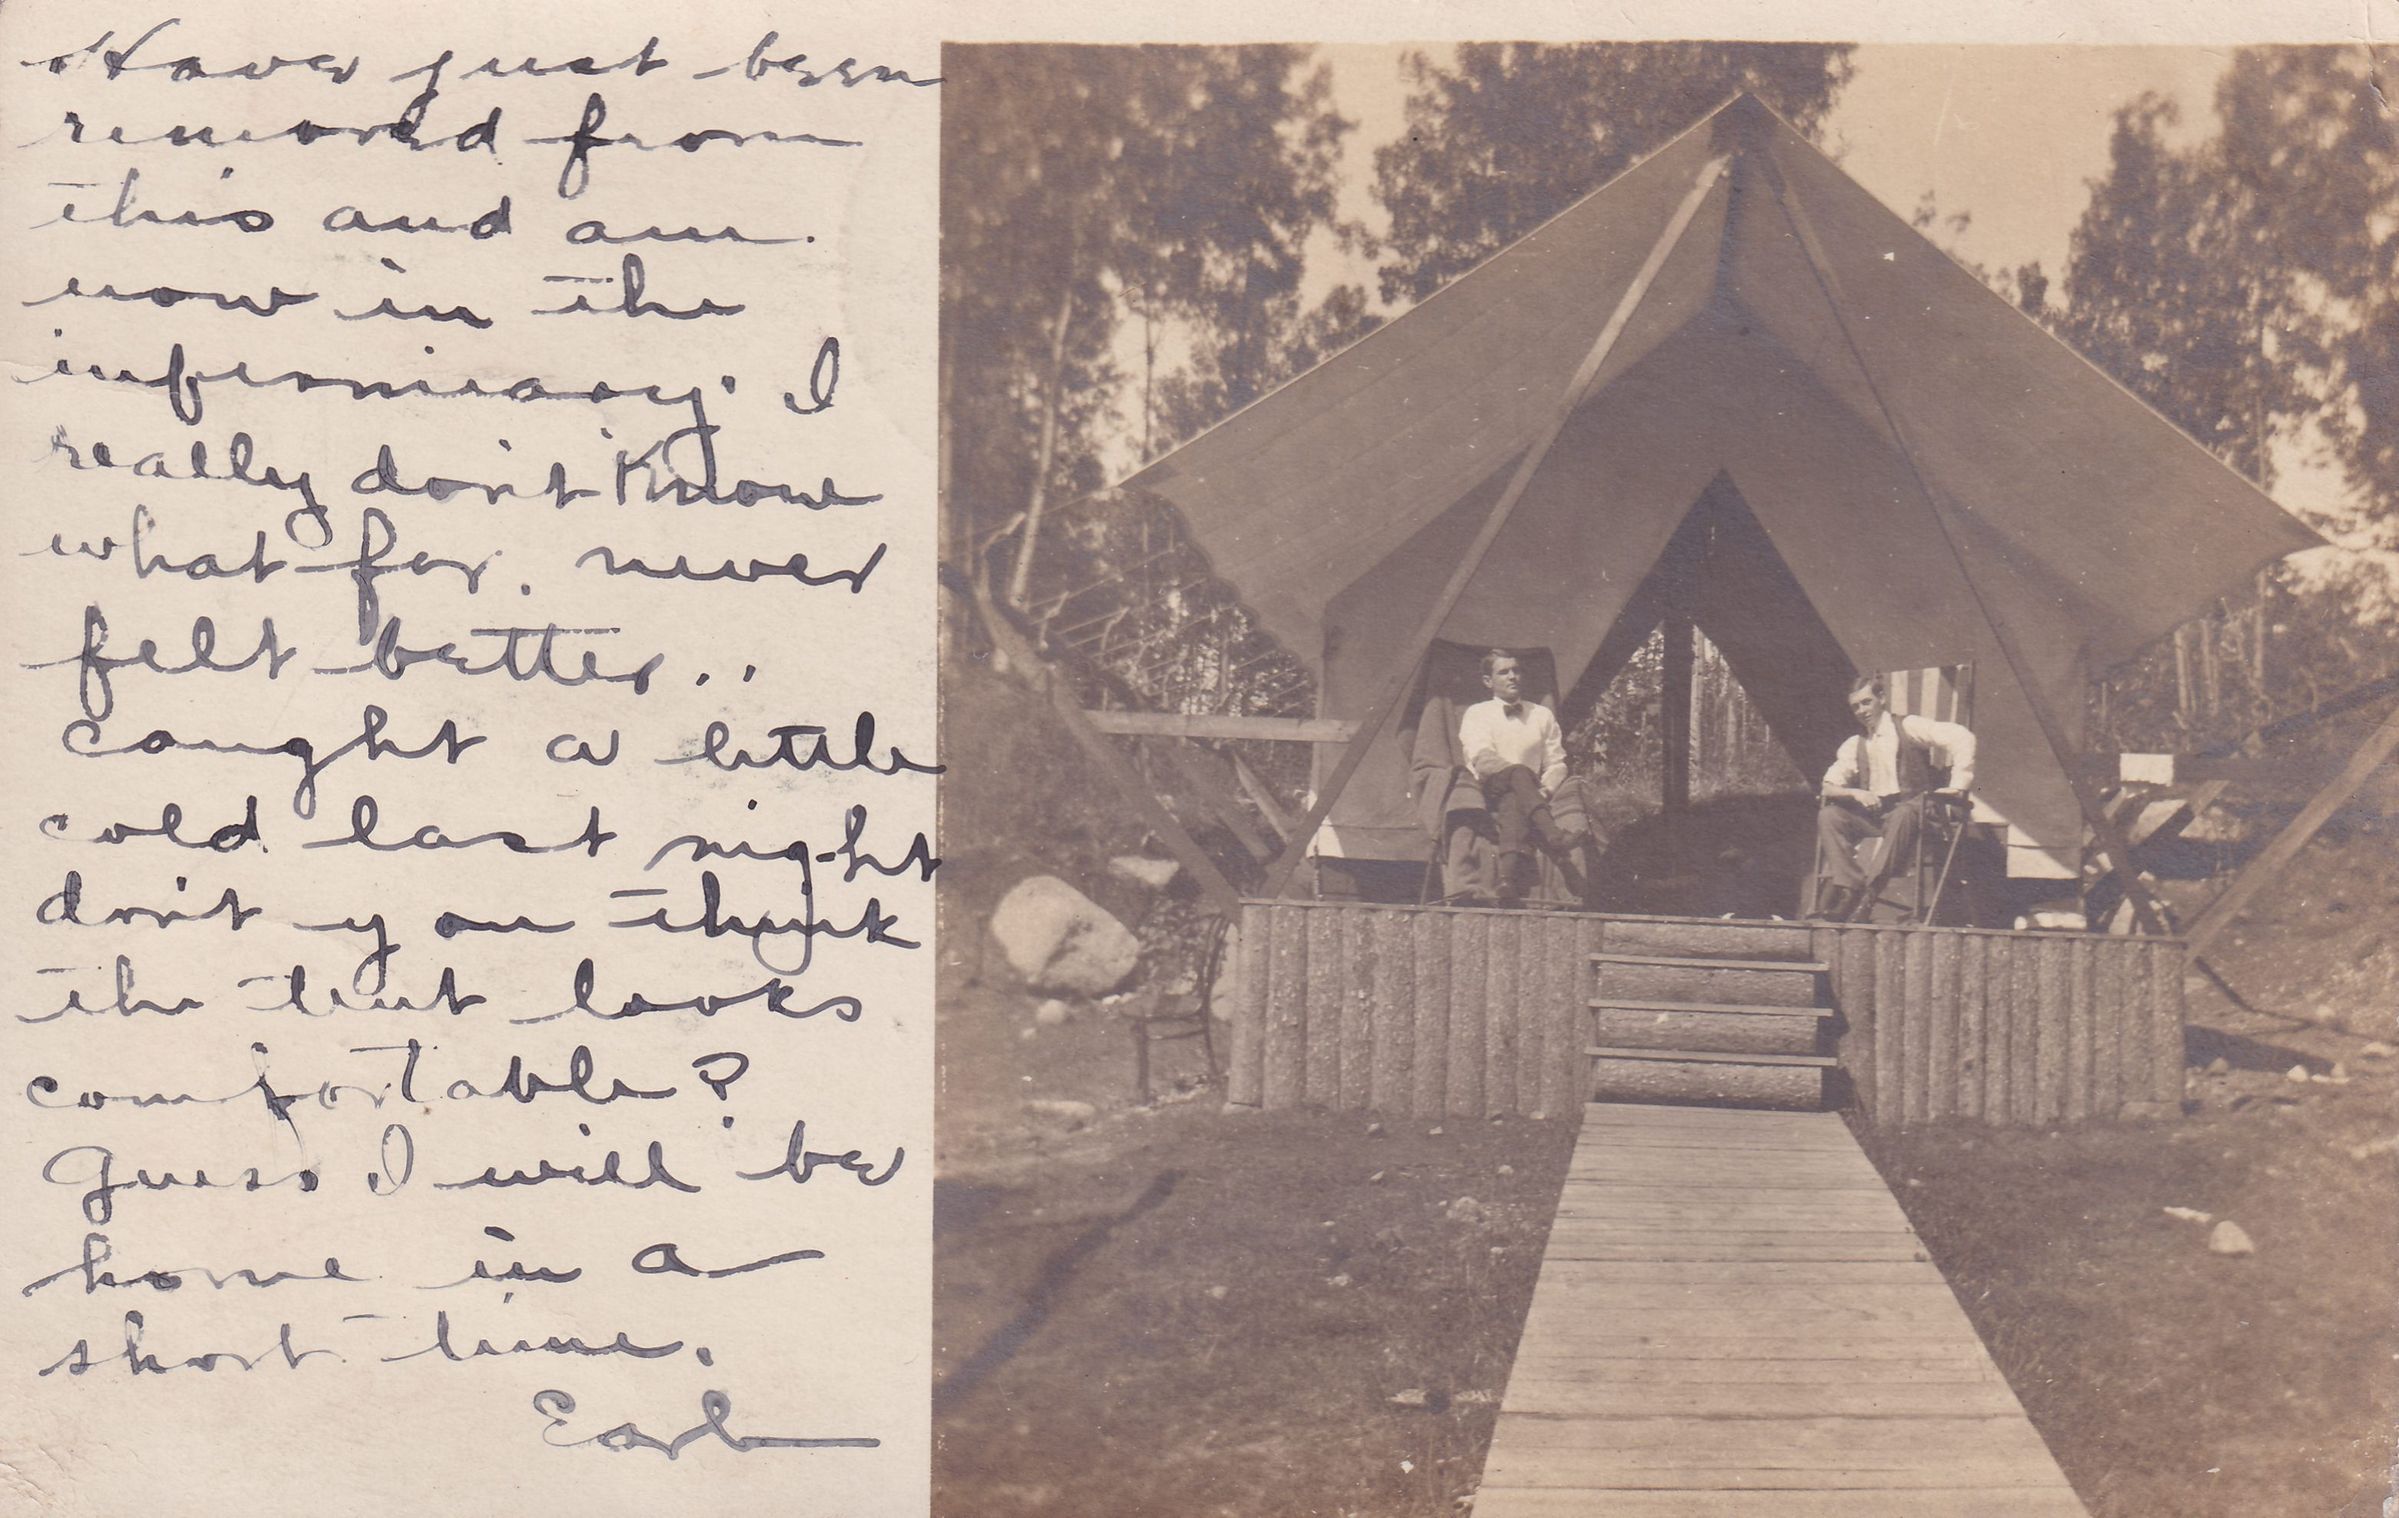 Have just been
removed from
this and am
now in the
infirmiary. I
really don't know
what for. never
felt better..
caught a little
cold last night
don't you think
the tent looks
comfortable?
Guess I will be
home in a
short time.
Earl